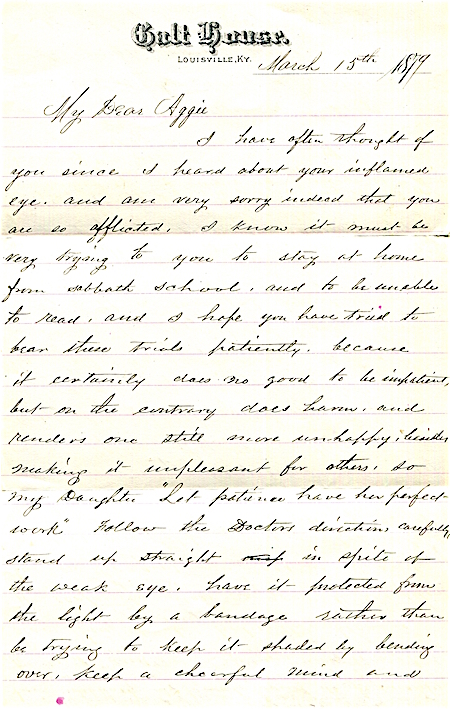 Galt House.
LOUISVILLE, KY. March 15th 1879
My Dear Aggie
I have often thought of
you since I heard about your inflamed
eye. and am very sorry indeed that you
are so afflicted, I know it must be
very trying to you to stay at home
from sabbath school, and to be unable
to read, and I hope you have tried to
bear these trials patiently, because
it certainly does no good to be impatient,
but on the contrary does harm, and
renders one still more unhappy, besides
making it unpleasant for others, so
my Daughter "Let patience have her perfect
work" Follow the Doctors directions carefully,
stand up straight in spite of
the weak eye, have it protected from
the light by a bandage rather than
be trying to keep it shaded by bending
over, keep a cheerful mind and